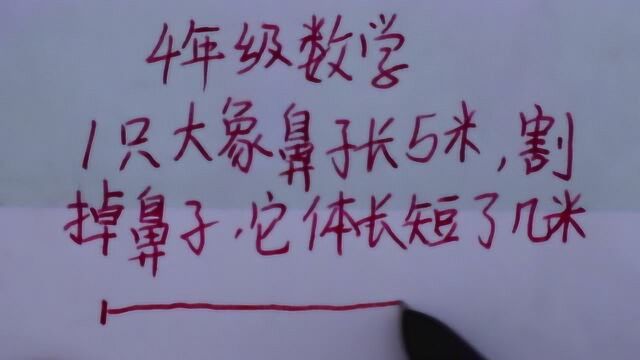 4年级数学
1只大象鼻子长5米,割
掉鼻子,它体长短了几米